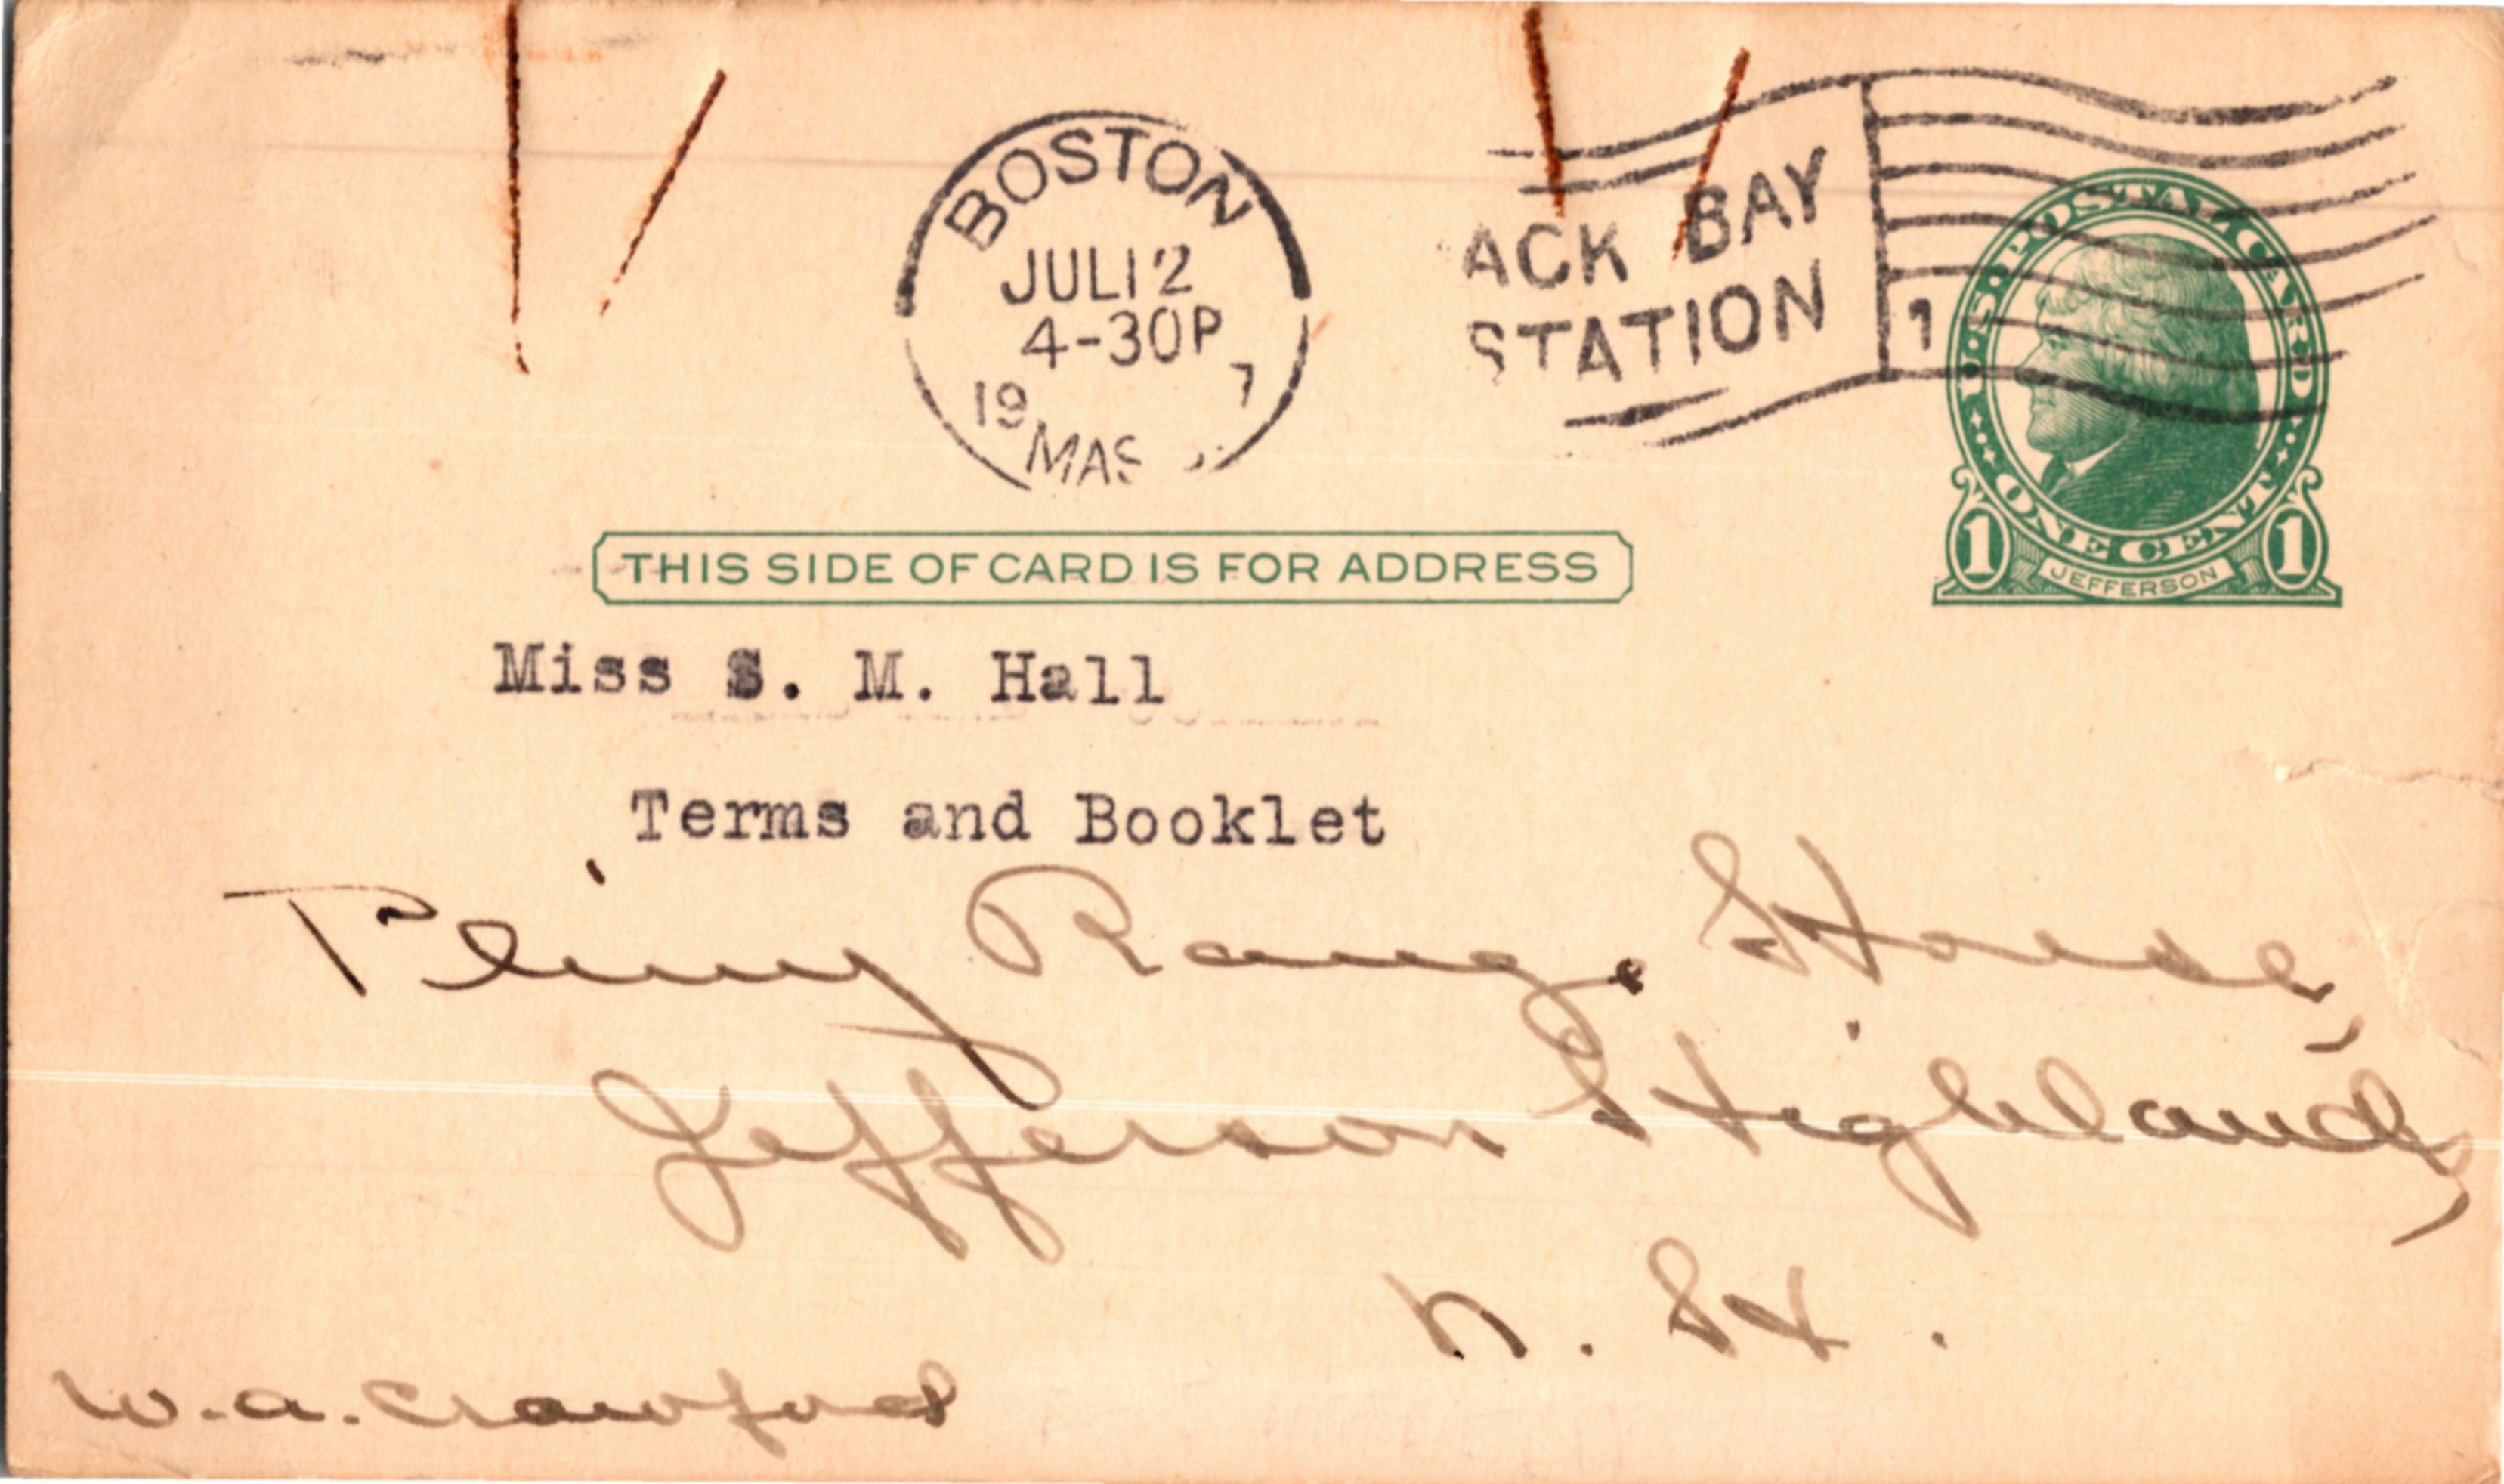 BOSTON
JUL 12
4-30P
19 7
MASS.
ACK BAY
STATION
1
U·S·POSTAL CARD
ONE CENT
1 JEFFERSON 1
THIS SIDE OF CARD IS FOR ADDRESS
Miss S. M. Hall
Terms and Booklet
Pliny Range House,
Jefferson Highlands,
N. H.
W. A. Crawford